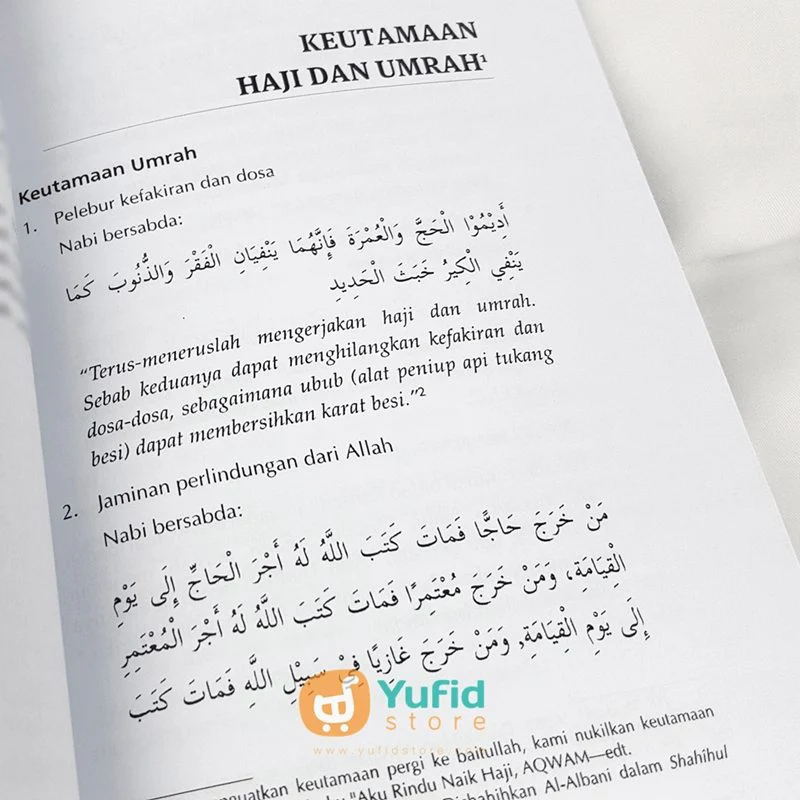 KEUTAMAAN
HAJI DAN UMRAH¹
Keutamaan Umrah
1. Pelebur kefakiran dan dosa
Nabi bersabda:
أَدِيْمُوْا الْحَجَّ وَالْعُمْرَةَ فَإِنَّهُمَا يَنْفِيَانِ الْفَقْرَ وَالذُّنُوبَ كَمَا
يَنْفِي الْكِيرُ خَبَثَ الْحَدِيدِ
“Terus-meneruslah mengerjakan haji dan umrah.
Sebab keduanya dapat menghilangkan kefakiran dan
dosa-dosa, sebagaimana ubub (alat peniup api tukang
besi) dapat membersihkan karat besi.”²
2. Jaminan perlindungan dari Allah
Nabi bersabda:
مَنْ خَرَجَ حَاجًّا فَمَاتَ كَتَبَ اللَّهُ لَهُ أَجْرَ الْحَاجِّ إِلَى يَوْمِ
الْقِيَامَةِ، وَمَنْ خَرَجَ مُعْتَمِرًا فَمَاتَ كَتَبَ اللَّهُ لَهُ أَجْرَ الْمُعْتَمِرِ
إِلَى يَوْمِ الْقِيَامَةِ, وَمَنْ خَرَجَ غَازِيًا فِيْ سَبِيْلِ اللَّهِ فَمَاتَ كَتَبَ
Yufid
store
www.yufidstore.com
keutamaan pergi ke baitullah, kami nukilkan keutamaan
"Aku Rindu Naik Haji, AQWAM—edt.
Al-Albani dalam Shahîhul